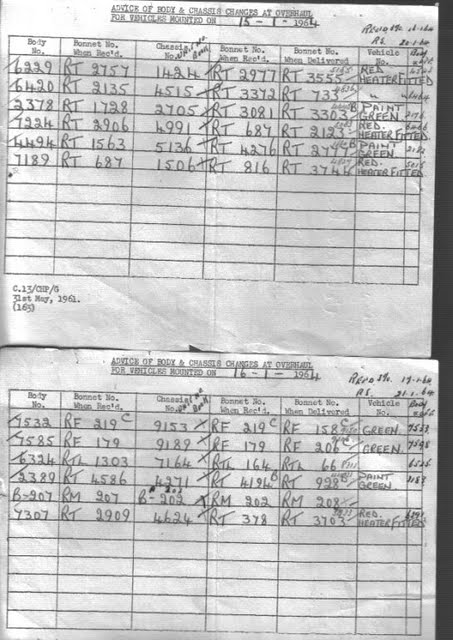 ADVICE OF BODY & CHASSIS CHANGES AT OVERHAUL
FOR VEHICLES MOUNTED ON 15-1-1964
Body No. Bonnet No. When Rec'd. Chassis No. Bonnet No. When Rec'd. Bonnet No. When Delivered Vehicle No. Body
6229 RT 2757 14214 RT 2977 RT 3555 RED. HEATER FITTED
6420 RT 2135 4515 RT 3372 RT 733 "
2378 RT 1728 2705 RT 3081 RT 3303 B PAINT GREEN
7224 RT 2906 4991 RT 687 RT 2123 RED. HEATER FITTED
4494 RT 1563 5136 RT 4276 RT 2777 B PAINT GREEN
7189 RT 687 1506 RT 816 RT 3744 RED. HEATER FITTED
C.13/CHP/G
31st May, 1961.
(165)
ADVICE OF BODY & CHASSIS CHANGES AT OVERHAUL
FOR VEHICLES MOUNTED ON 16-1-1964
Body No. Bonnet No. When Rec'd. Chassis No. Bonnet No. When Rec'd. Bonnet No. When Delivered Vehicle No. Body
7532 RF 219 C 9153 RF 219 C RF 158 C GREEN
7585 RF 179 9189 RF 179 RF 206 GREEN
6324 RTL 1303 7164 RTL 164 RTL 66
2389 RT 4586 4271 RT 4194 B RT 928 PAINT GREEN
B-207 RM 207 B-202 RM 202 RM 208
7307 RT 2909 4624 RT 378 RT 3703 RED. HEATER FITTED